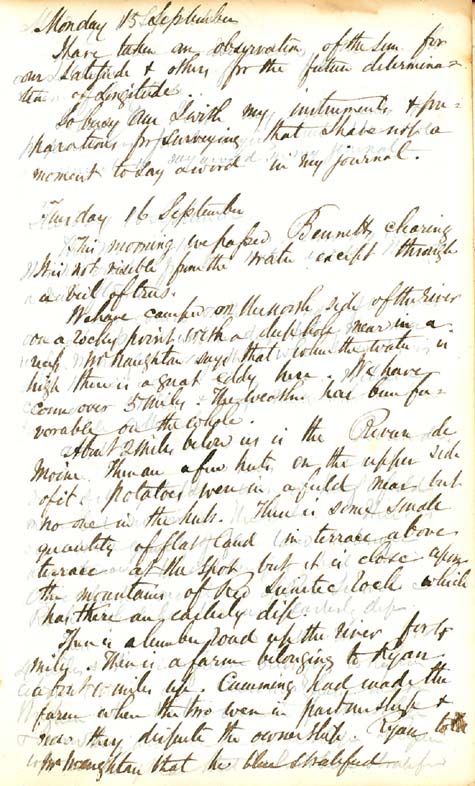 Monday 15 September
I have taken an observation of the sun for
our Latitude & others for the future determina=
tion of longitude.
So busy am I with my instruments & pre=
parations for surveying that I have not a
moment to say a word in my journal.
Tuesday 16 September
This morning we passed Bennetts clearing
It is not visible from the water except through
a veil of trees.
We have camped on the north side of the river
on a rocky point with a deep hole near in a
reef. Mr Naughtan says that when the water is
high there is a great eddy here. We have
come over 5 miles. The weather has been fa=
vorable on the whole.
About 2 miles below us is the Rivière de
Moine. There are a few huts on the upper side
of it. Potatoes were in a field near but
no one in the huts. There is some small
quantity of flat land in terrace above
terrace at the spot but it is close upon
the mountains of Red Syenitic rock which
has there an easterly dip.
There is a lumber road up the river for 40
miles & there is a farm belonging to Ryan
about 10 miles up. Cumming had made the
farm when the two were in partnership &
now they dispute the ownership. Ryan to
Mr Naughtan that the blue stratified